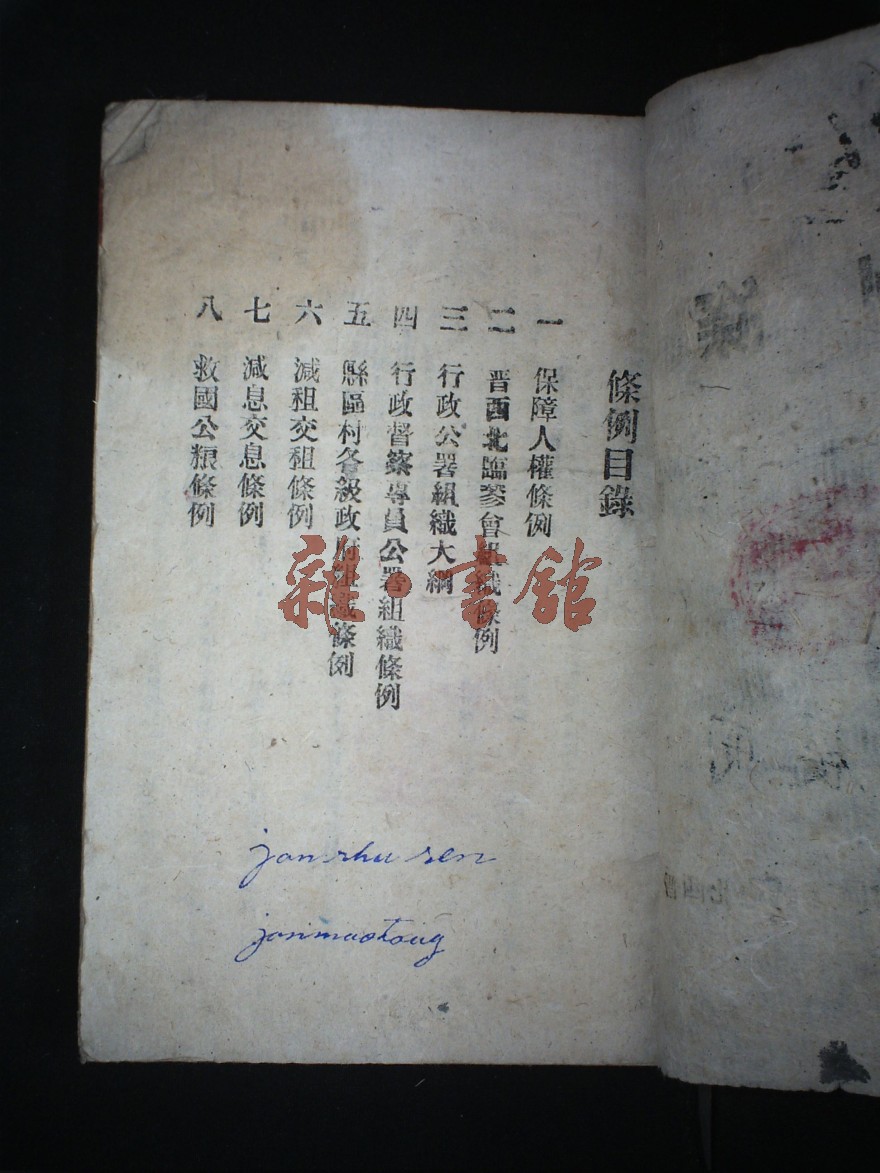 條例目錄
一 保障人權條例
二 晋西北臨參會組織條例
三 行政公署組織大綱
四 行政督察專員公署組織條例
五 縣區村各級政府組織條例
六 減租交租條例
七 減息交息條例
八 救國公粮條例
雜·書館
janshu ren
janmaotoug